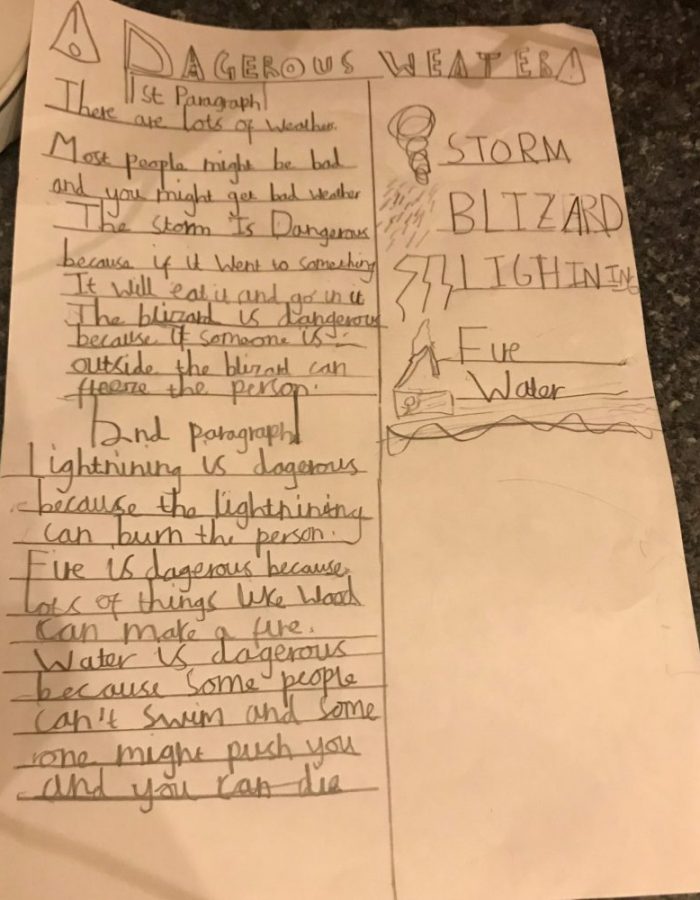 DAGEROUS WEATER
1st Paragraph
There are lots of weather.
Most people might be bad
and you might get bad weather
The storm Is Dangerous
because if it Went to something
It will eat it and go in it
The blizzard is dangerous
because if someone is
outside the blizard can
freeze the person.
2nd paragraph
Lightnining is dagerous
because the lightnining
can burn the person.
Fire is dagerous because
Lots of things like Wood
can make a fire.
Water is dagerous
because some people
can't swim and some
one might push you
and you can die
STORM
BLIZARD
LIGHINING
Fire
Water